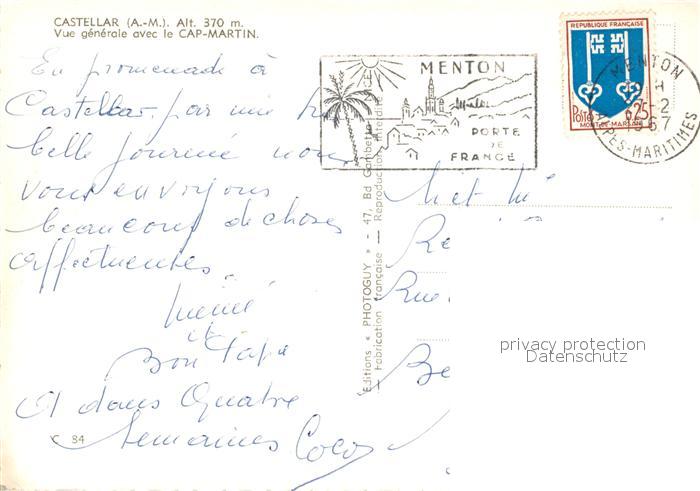 CASTELLAR (A.-M.). Alt. 370 m.
Vue générale avec le CAP-MARTIN.
En promenade à
Castellar par une
belle journée nous
vous envoyons
beaucoup de choses
affectueuses
mémé
et
Bon Papa
A dans Quatre
Semaines Coco
K 84
Editions « PHOTOGUY » - 47, Bd Gambetta
Fabrication française — Reproduction interdite
MENTON
PORTE
DE
FRANCE
REPUBLIQUE FRANÇAISE
0,25
POSTES
MONT-DE-MARSAN
MENTON
H
-2
1967
ALPES-MARITIMES
Re
Rue
Be
privacy protection
Datenschutz